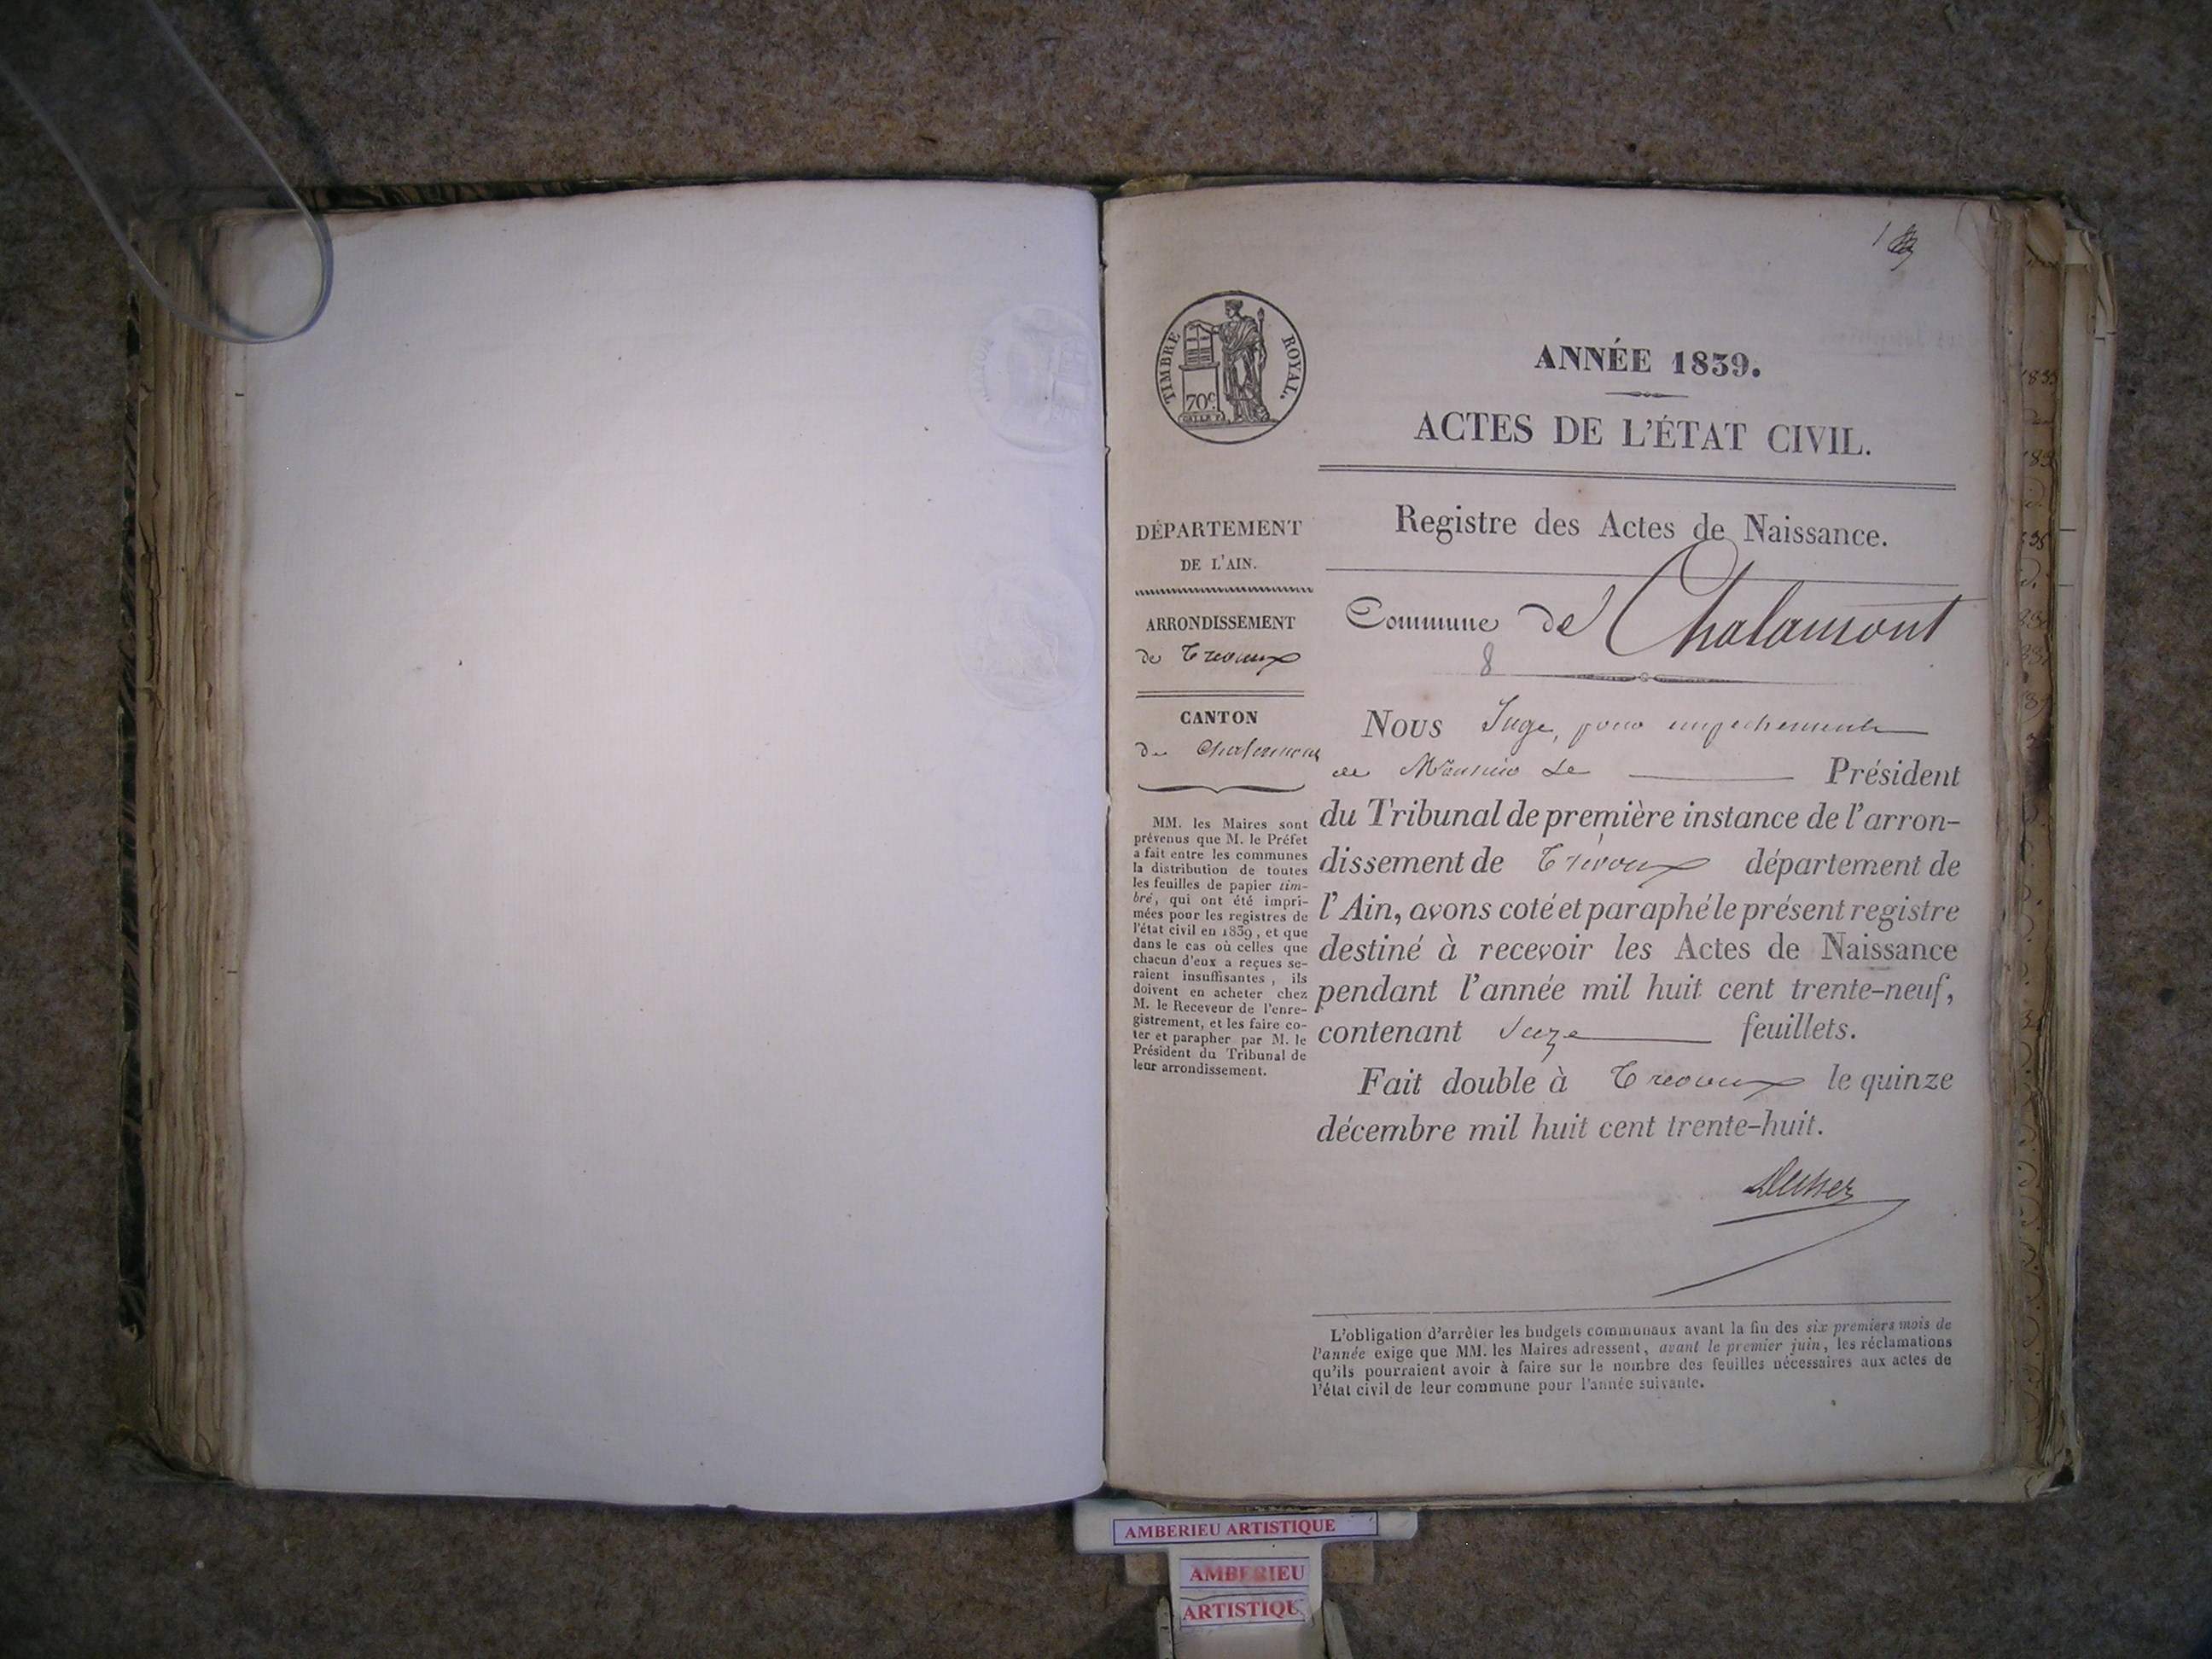 1
TIMBRE ROYAL.
70c
ANNÉE 1839.
ACTES DE L'ÉTAT CIVIL.
Registre des Actes de Naissance.
Commune de Chalamont
8
DÉPARTEMENT
DE L'AIN.
ARRONDISSEMENT
de Trevoux
CANTON
de Chalamont
MM. les Maires sont
prévenus que M. le Préfet
a fait entre les communes
la distribution de toutes
les feuilles de papier tim-
bré, qui ont été impri-
mées pour les registres de
l'état civil en 1839, et que
dans le cas où celles que
chacun d'eux a reçues se-
raient insuffisantes, ils
doivent en acheter chez
M. le Receveur de l'enre-
gistrement, et les faire co-
ter et parapher par M. le
Président du Tribunal de
leur arrondissement.
Nous Juge, pour empechement
de Monsieur Le Président
du Tribunal de première instance de l'arron-
dissement de Trévoux département de
l'Ain, avons coté et paraphé le présent registre
destiné à recevoir les Actes de Naissance
pendant l'année mil huit cent trente-neuf,
contenant feuillets.
Fait double à Trevoux le quinze
décembre mil huit cent trente-huit.
L'obligation d'arrêter les budgets communaux avant la fin des six premiers mois de
l'année exige que MM. les Maires adressent, avant le premier juin, les réclamations
qu'ils pourraient avoir à faire sur le nombre des feuilles nécessaires aux actes de
l'état civil de leur commune pour l'année suivante.
AMBERIEU ARTISTIQUE
AMBERIEU
ARTISTIQUE